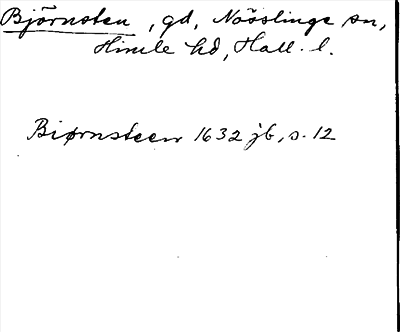 Björnsten, gd, Nösslinge sn,
Himle hd, Hall. l.
Biørnsteen 1632 jb, s. 12